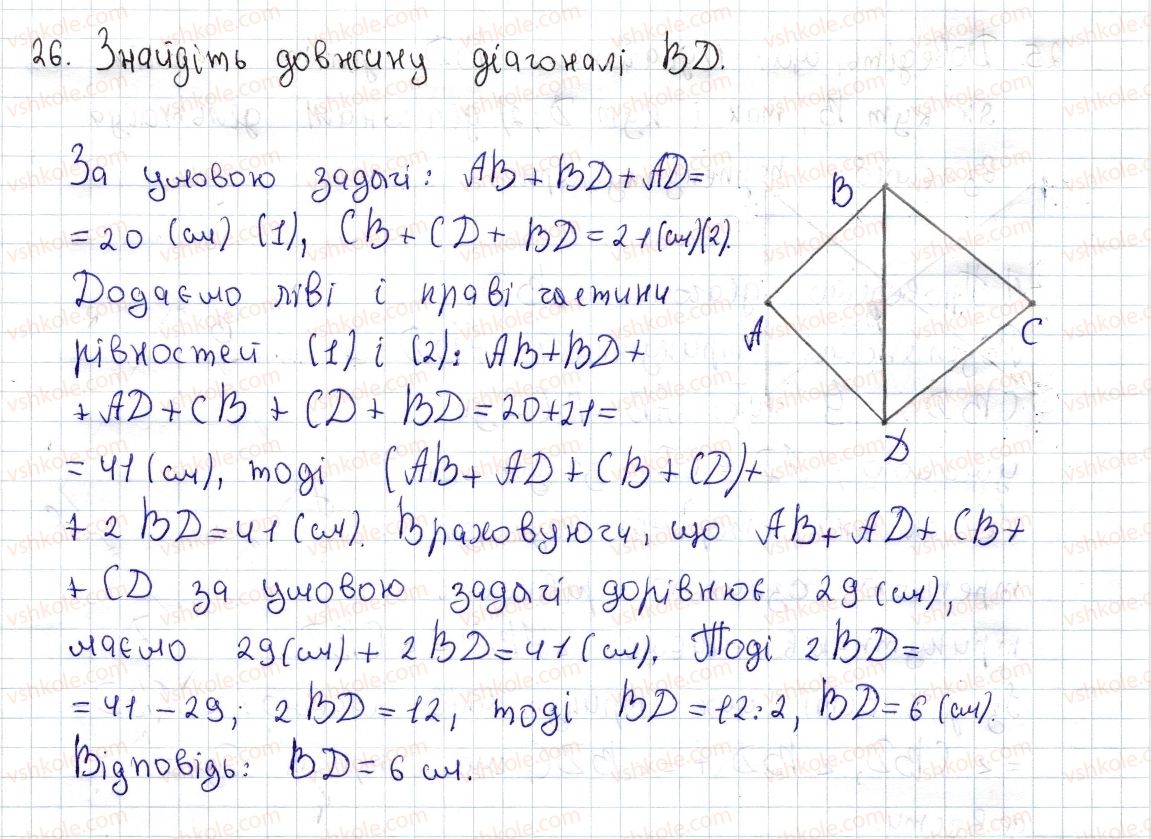 26. Знайдіть довжину діагоналі BD.
За умовою задачі: AB + BD + AD =
= 20 (см) (1), CB + CD + BD = 21 (см) (2).
Додаємо ліві і праві частини
рівностей (1) і (2): AB + BD +
+ AD + CB + CD + BD = 20 + 21 =
= 41 (см), тоді (AB + AD + CB + CD) +
+ 2 BD = 41 (см). Враховуючи, що AB + AD + CB +
+ CD за умовою задачі дорівнює 29 (см),
маємо 29 (см) + 2 BD = 41 (см). Тоді 2 BD =
= 41 - 29; 2 BD = 12, тоді BD = 12 : 2, BD = 6 (см).
Відповідь: BD = 6 см.
B
A
C
D